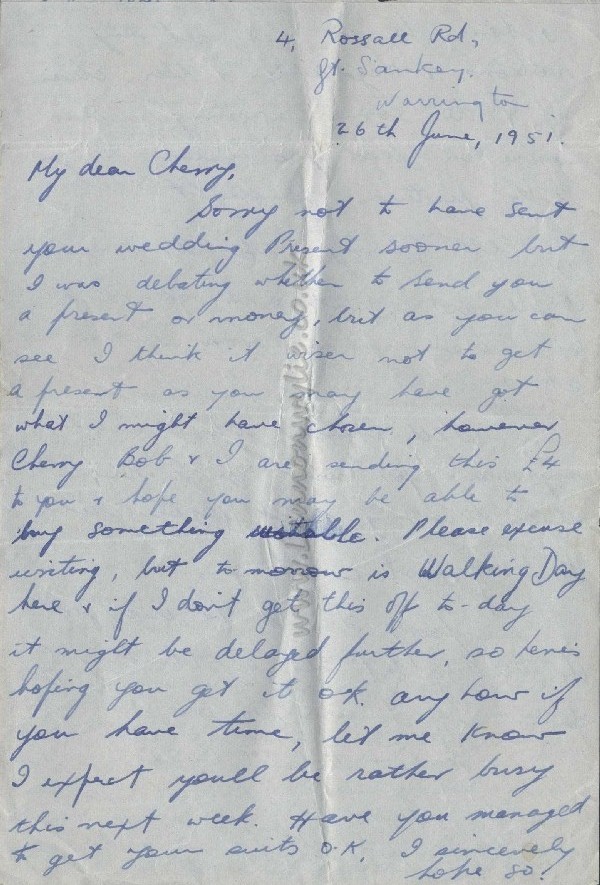 4, Rossall Rd,
Gt. Sankey.
Warrington
26th June, 1951.
My dear Cherry,
Sorry not to have sent
your wedding Present sooner but
I was debating whether to send you
a present or money, but as you can
see I think it wiser not to get
a present as you may have got
what I might have chosen, however
Cherry Bob & I are sending this £4
to you & hope you may be able to
buy something. Please excuse
writing, but to morrow is Walking Day
here & if I don't get this off to-day
it might be delayed further, so here's
hoping you get it o.k. any how if
you have time, let me know
I expect you'll be rather busy
this next week. Have you managed
to get your suits O.K. I sincerely
hope so!